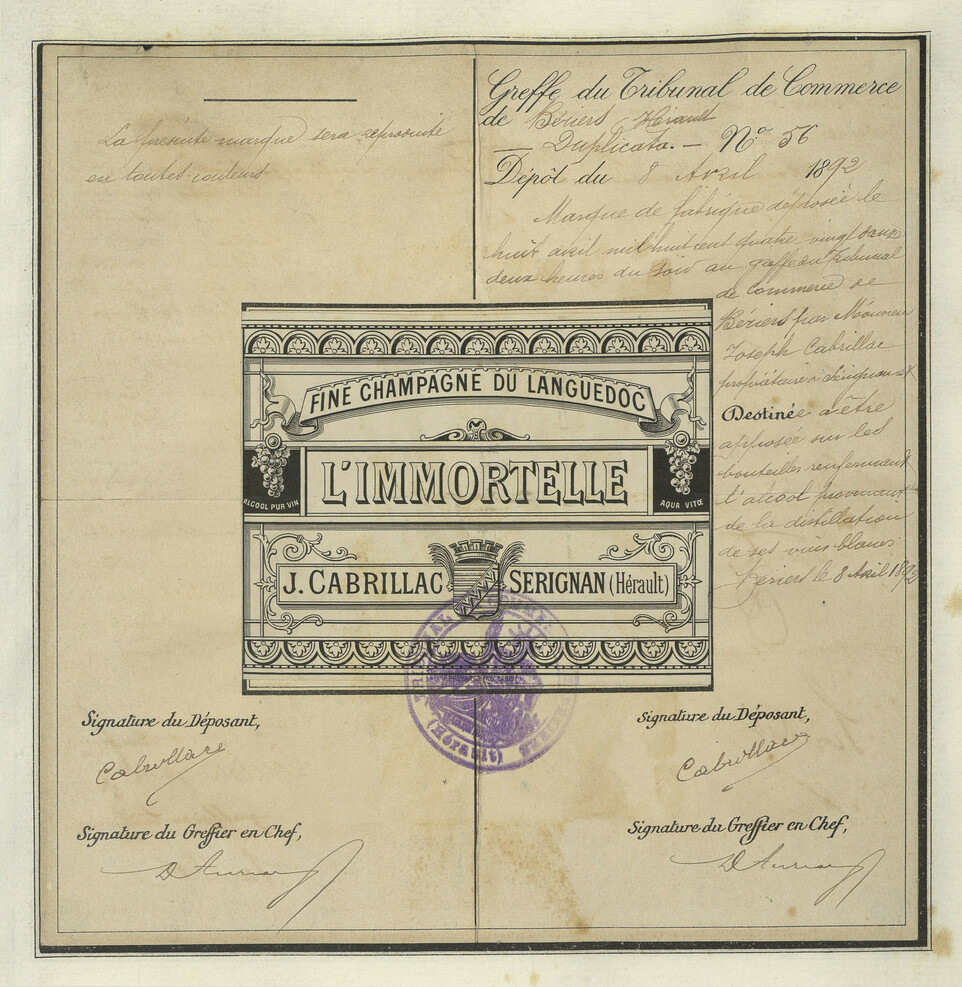 La présente marque sera reproduite
en toutes couleurs
Greffe du Tribunal de Commerce
de Béziers Hérault
Duplicata. — Nº 56
Dépôt du 8 Avril 1892
Marque de fabrique déposée le
huit avril mil huit cent quatre vingt douze
deux heures du soir au greffe du Tribunal
de commerce de
Béziers par Monsieur
Joseph Cabrillac
propriétaire à Sérignan
Destinée à être
apposée sur les
bouteilles renfermant
l'alcool provenant
de la distillation
de ses vins blancs
Béziers le 8 Avril 1892
FINE CHAMPAGNE DU LANGUEDOC
M
L'IMMORTELLE
ALCOOL PUR VIN
AQUA VITŒ
J. CABRILLAC SERIGNAN (Hérault)
TRIBUNAL DE COMMERCE
BÉZIERS
(Hérault)
Signature du Déposant,
Cabrillac
Signature du Greffier en Chef,
Signature du Déposant,
Cabrillac
Signature du Greffier en Chef,